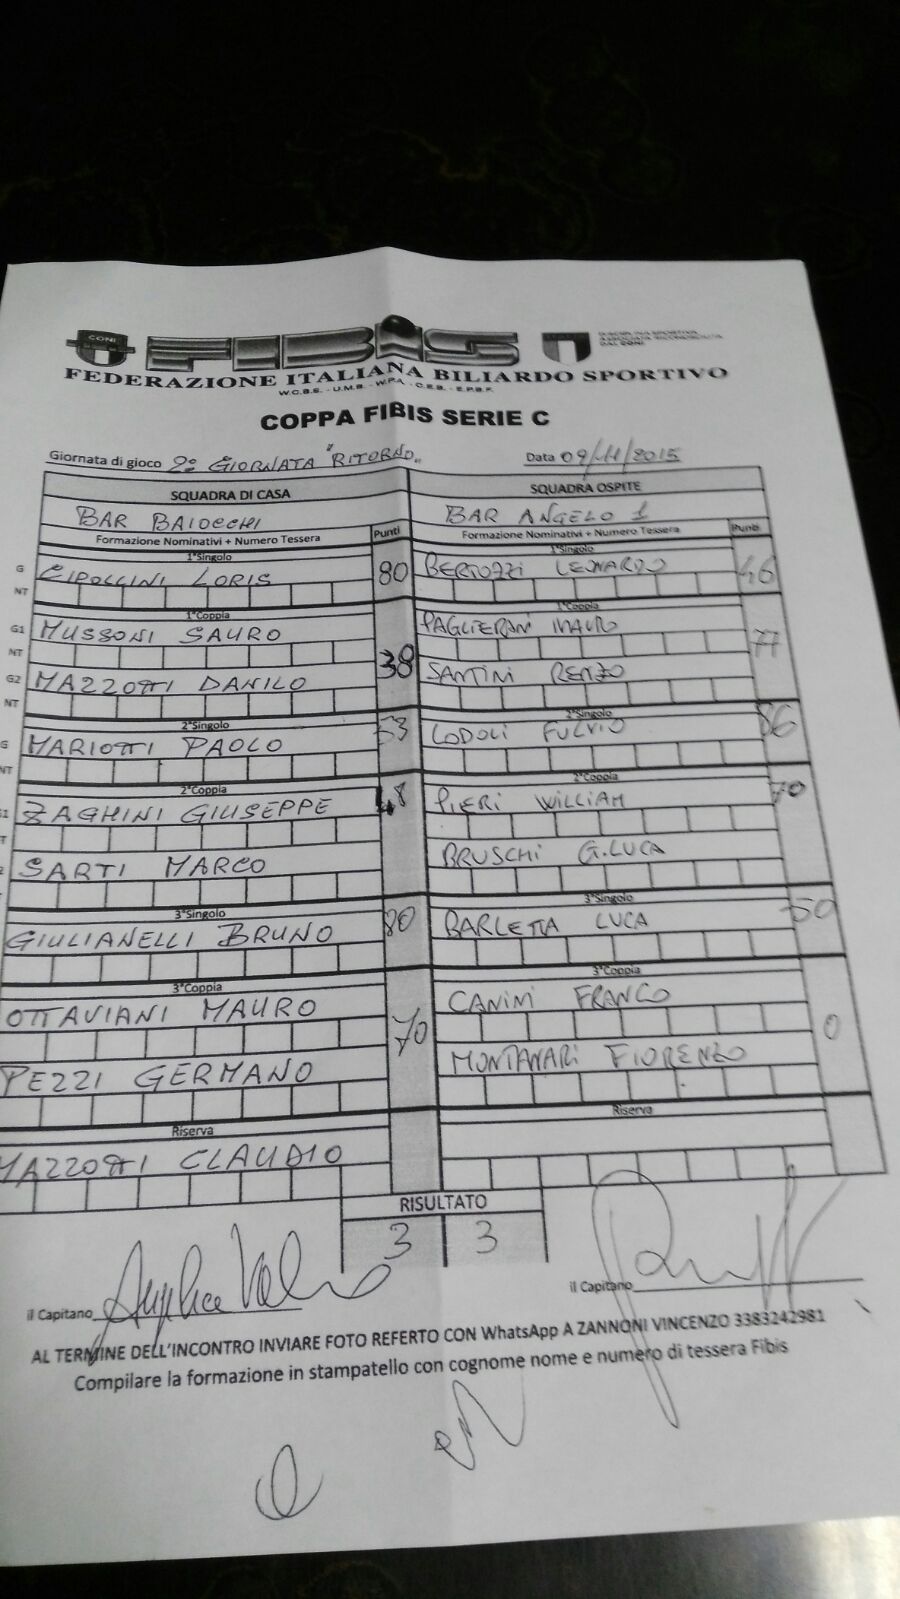 CONI FIBiS
FEDERAZIONE ITALIANA BILIARDO SPORTIVO
W.C.B.S. - U.M.B. - W.P.A. - C.E.B. - E.P.B.F.
COPPA FIBIS SERIE C
Giornata di gioco 2° GIORNATA "RITORNO" Data 09/11/2015
SQUADRA DI CASA SQUADRA OSPITE
BAR BAIOCCHI BAR ANGELO 1
Formazione Nominativi + Numero Tessera Punti Formazione Nominativi + Numero Tessera Punti
1°Singolo 1°Singolo
G CIPOLLINI LORIS 80 BERTOZZI LEONARDO 46
NT
1°Coppia 1°Coppia
G1 MUSSONI SAURO 38 PAGLIERANI MAURO 77
NT
G2 MAZZOTTI DANILO SANTINI RENZO
NT
2°Singolo 2°Singolo
G MARIOTTI PAOLO 53 LODOLI FULVIO 86
NT
2°Coppia 2°Coppia
ZAGHINI GIUSEPPE 48 PIERI WILLIAM 70
SARTI MARCO BRUSCHI G.LUCA
3°Singolo 3°Singolo
GIULIANELLI BRUNO 80 BARLETTA LUCA 50
3°Coppia 3°Coppia
OTTAVIANI MAURO 70 CANINI FRANCO 0
PEZZI GERMANO MONTANARI FIORENZO
Riserva Riserva
MAZZOTTI CLAUDIO
RISULTATO
3 3
il Capitano il Capitano
AL TERMINE DELL'INCONTRO INVIARE FOTO REFERTO CON WhatsApp A ZANNONI VINCENZO 3383242981
Compilare la formazione in stampatello con cognome nome e numero di tessera Fibis